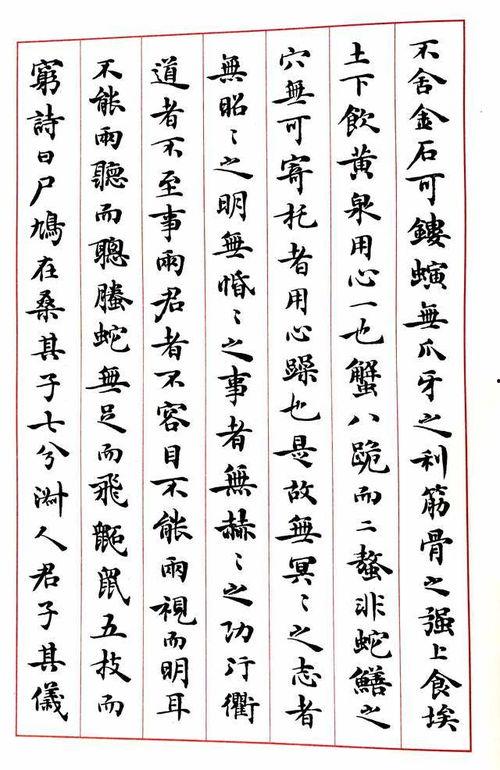 不舍金石可鏤螾無爪牙之利筋骨之强上食埃
土下飲黄泉用心一也蟹八跪而二螯非蛇鱔之
穴無可寄托者用心躁也是故無冥〻之志者
無昭〻之明無惛〻之事者無赫〻之功行衢
道者不至事兩君者不容目不能兩視而明耳
不能兩聽而聰螣蛇無足而飛鼫鼠五技而
窮詩曰尸鳩在桑其子七兮淑人君子其儀